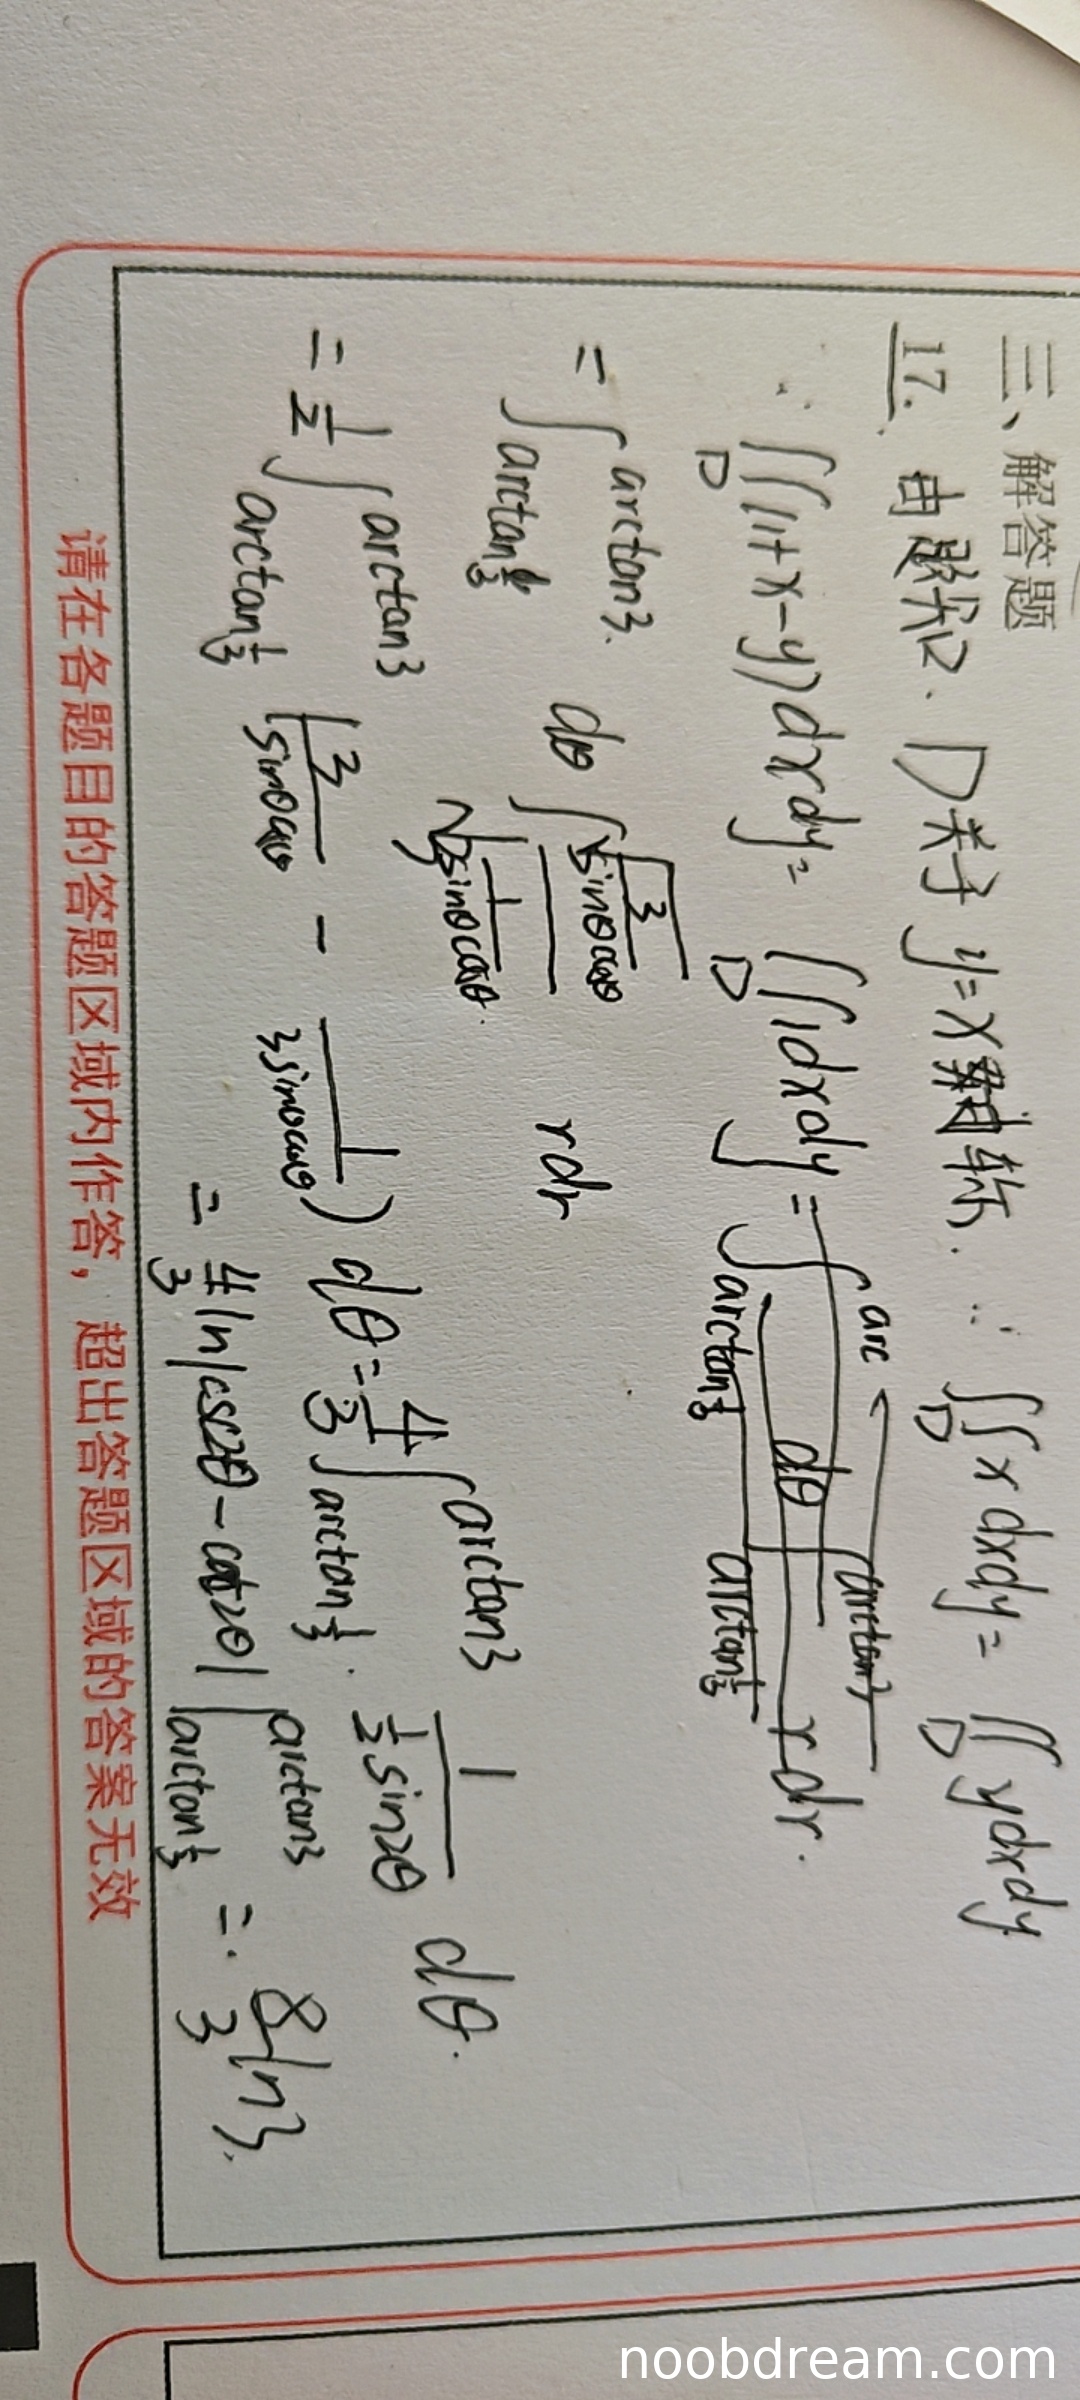 三、解答题
17. 由题知. D关于y=x对称. ∴ ∬_D x dxdy = ∬_D y dxdy
∴ ∬_D (1+x-y)dxdy = ∬_D 1dxdy =
= ∫_{arctan1/3}^{arctan3} dθ ∫_{√(1/(3sinθcosθ))}^{√(3/(sinθcosθ))} rdr
= 1/2 ∫_{arctan1/3}^{arctan3} (3/(sinθcosθ) - 1/(3sinθcosθ)) dθ = 4/3 ∫_{arctan1/3}^{arctan3} 1/(1/2 sin2θ) dθ.
= 4/3 ln|csc2θ-cot2θ| |_{arctan1/3}^{arctan3} = 8/3 ln3.
请在各题目的答题区域内作答，超出答题区域的答案无效
noobdream.com